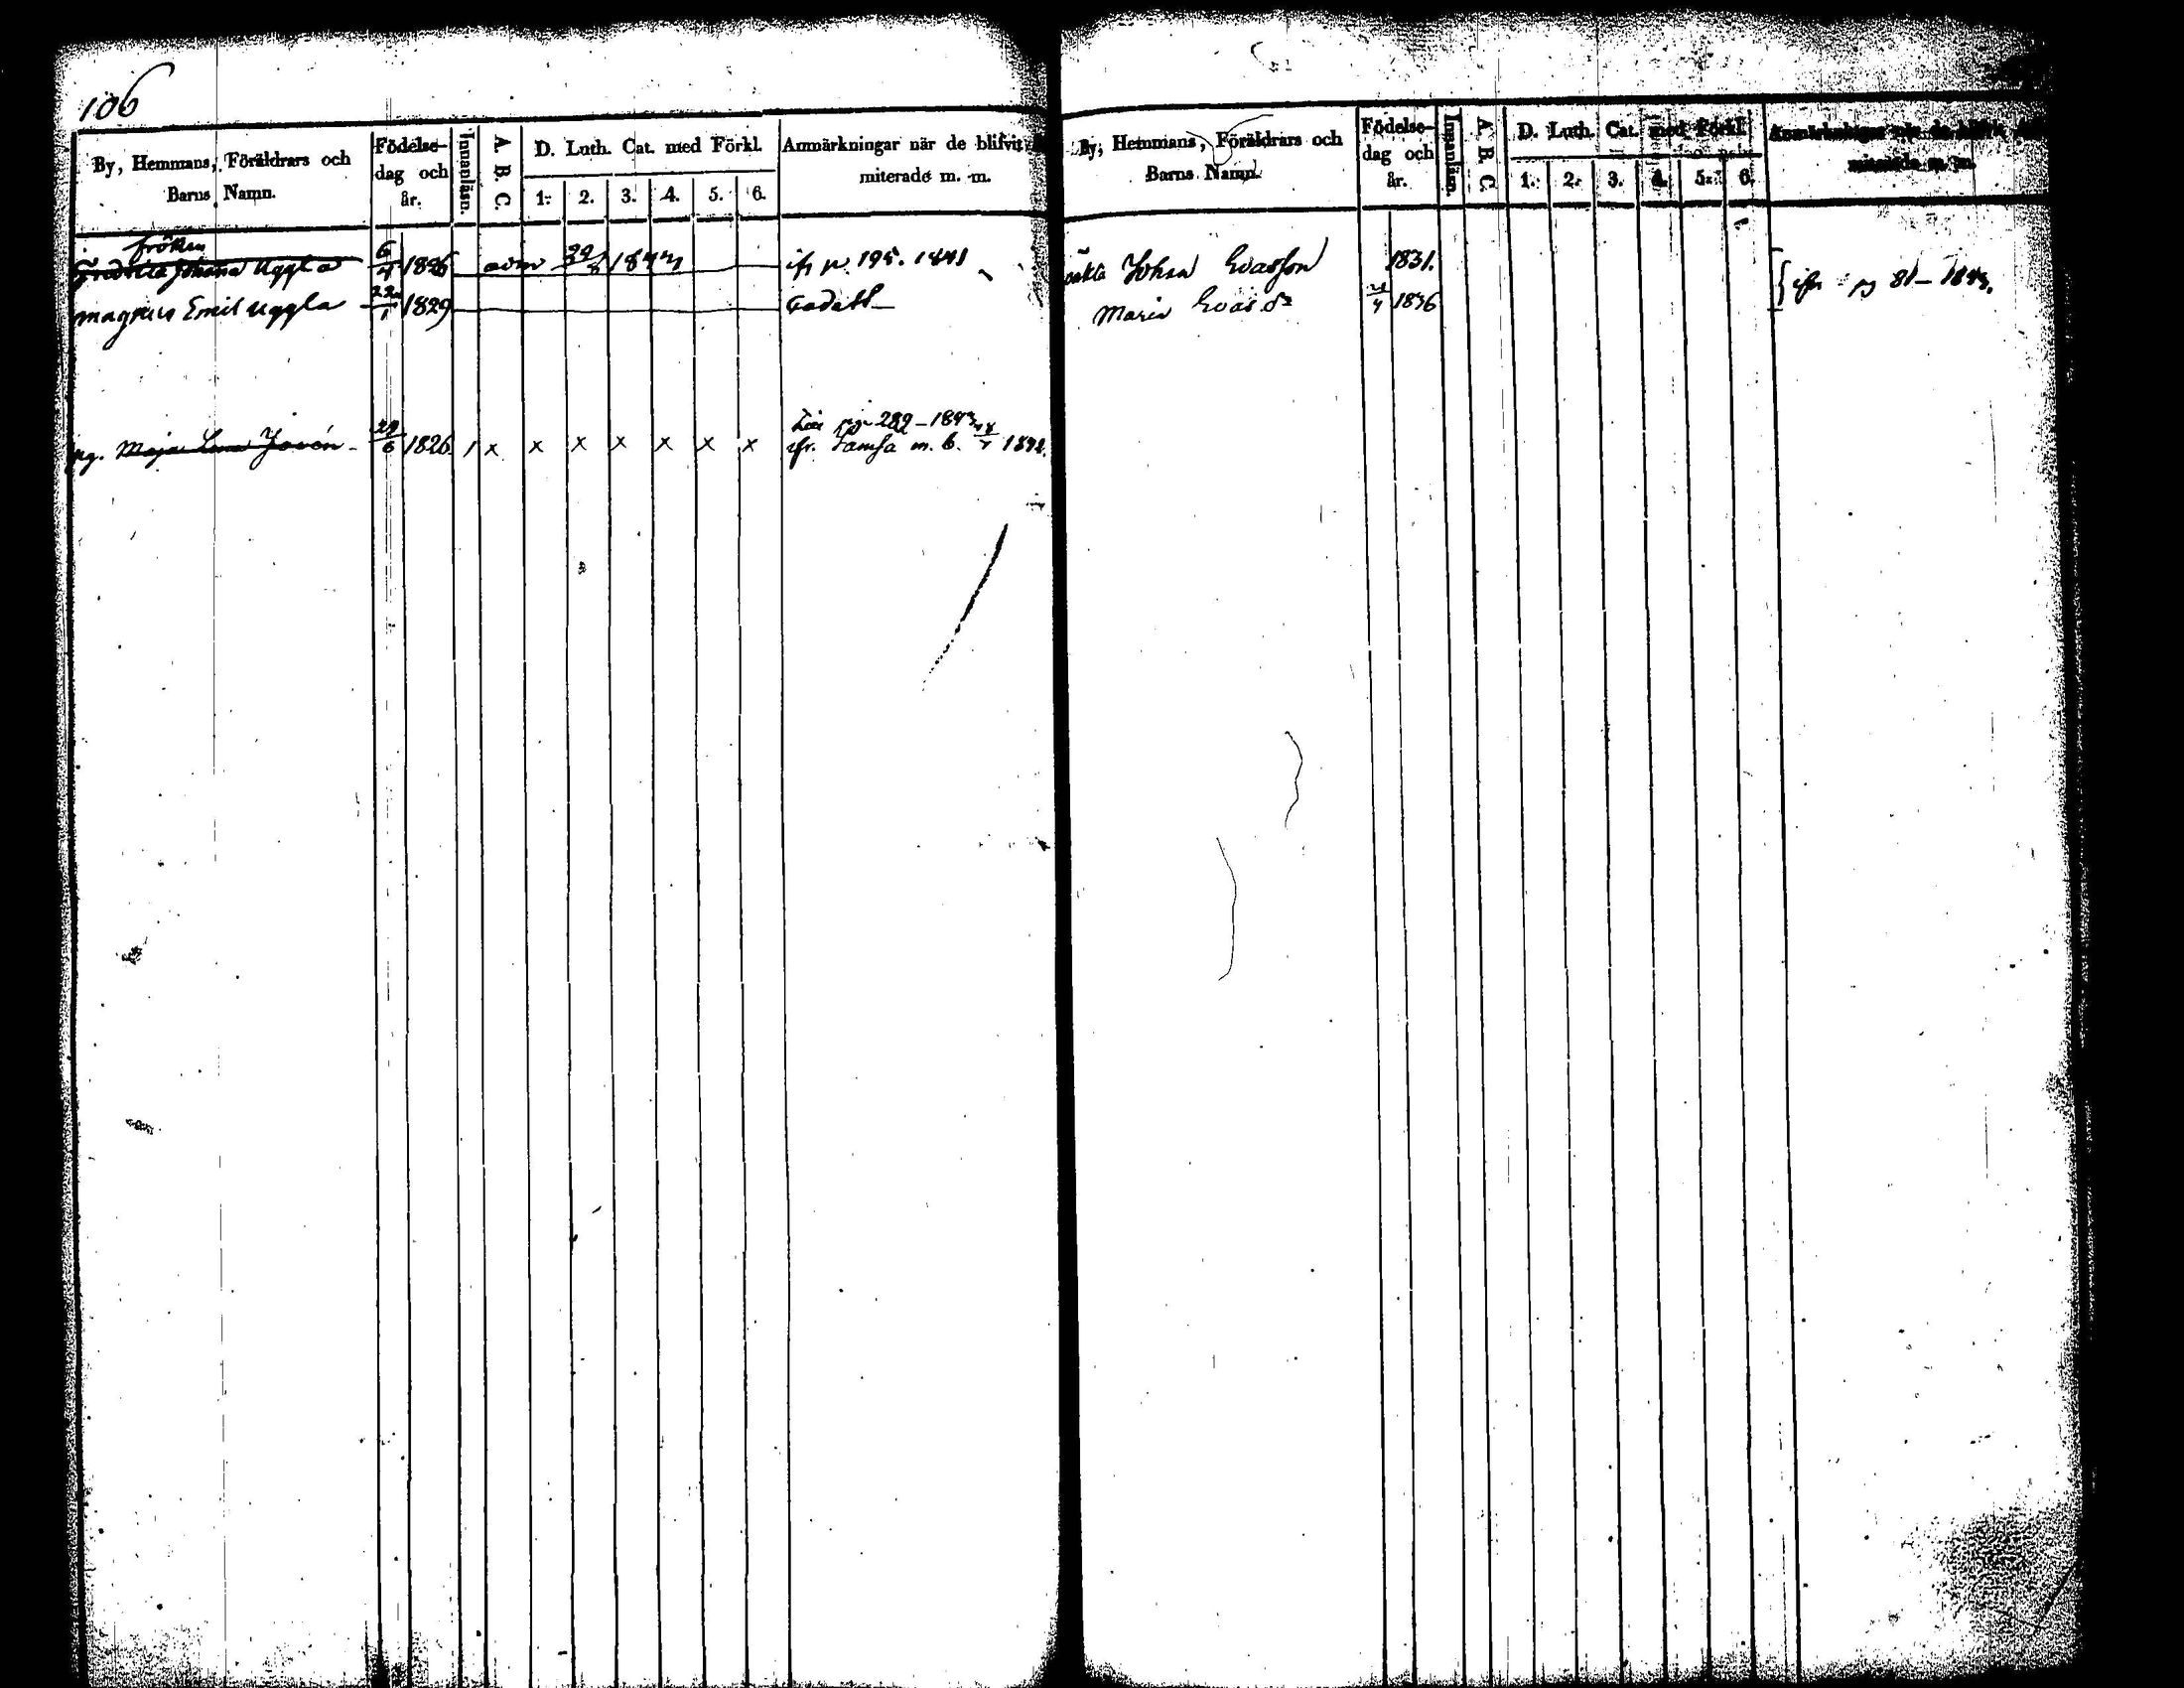 106
By, Hemmans, Föräldrars och
Barns Namn.
Födelse-
dag och
år.
Innanläsn.
A. B. C.
D. Luth. Cat. med Förkl.
1. 2. 3. 4. 5. 6.
Anmärkningar när de blifvit
miterade m. m.
fröken
Fredrica Johana Uggla 6/4 1826 adm 1843 ifr p. 195. 1841
Magnus Emil Uggla 22/1 1829 Cadett
pig. Maja Lena Jovén 29/6 1826 1 x x x x x x x
Lia pag 289 - 1843
ifr. Tamsa m. b. 1842.
By, Hemmans, Föräldrars och
Barns Namn.
Födelse-
dag och
år.
Innanläsn.
A. B. C.
D. Luth. Cat. med Förkl.
1. 2. 3. 4. 5. 6.
Anmärkningar när de blifvit
miterade m. m.
oäkta Johan Evasson 1831.
Maria Evasdr 1836
ifr pg 81 - 1843.